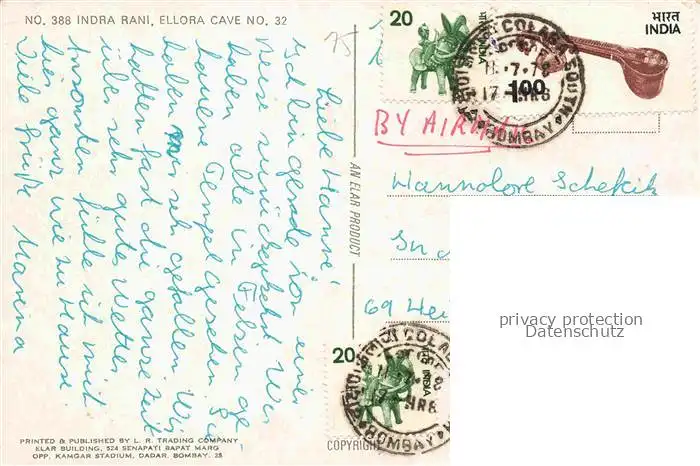 NO. 388 INDRA RANI, ELLORA CAVE NO. 32
75
Liebe Hanne,
Ich bin gerade von einer
Reise zurückgekehrt. Wir
haben alle in Felsen ge-
hauene Tempel gesehen. Sie
haben mir sehr gefallen. Wir
hatten fast die ganze Zeit
über sehr gutes Wetter.
Ansonsten fühle ich mich
hier ganz wie zu Hause.
Viele Grüße Marena
AN ELAR PRODUCT
COPYRIGHT
20
INDIA
भारत
INDIA
1.00
COLABA SOUTH
BOMBAY
BY AIR
Hannolore
69
privacy protection
Datenschutz
20
भारत INDIA
BOMBAY
PRINTED & PUBLISHED BY L. R. TRADING COMPANY
ELAR BUILDING, 524 SENAPATI BAPAT MARG
OPP. KAMGAR STADIUM, DADAR, BOMBAY. 28